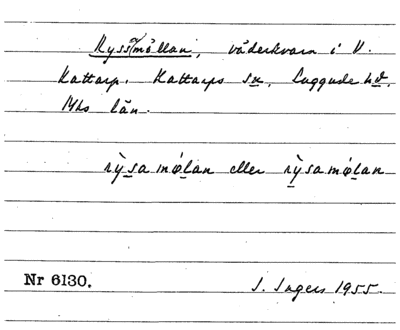 Ryss(a)möllan, väderkvarn i V.
Kattarp, Kattarps sn, Luggude hd,
Mhs län.
rỳsamǿlan eller rỳsamǿlan
Nr 6130.
J. Ingers 1955.